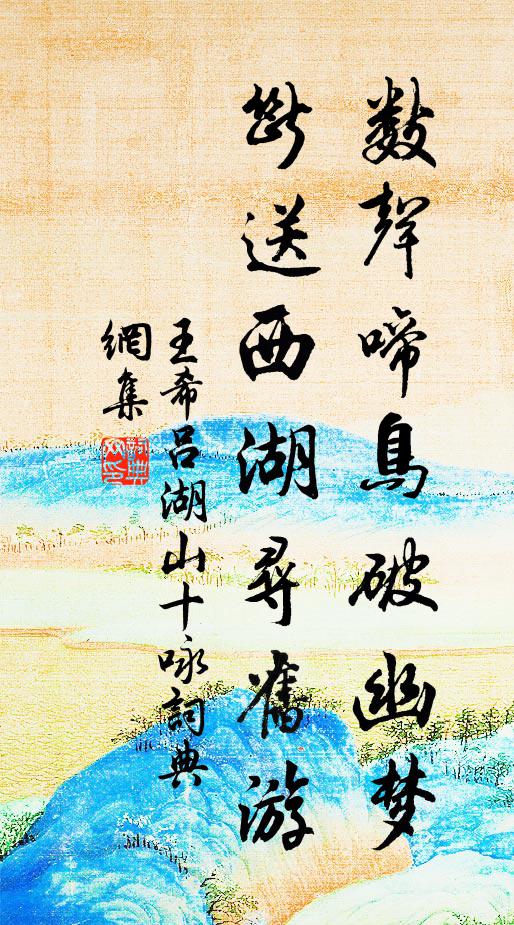 數聲啼鳥破幽梦
斷送西湖尋舊游
王希吕湖山十咏詞典
網集